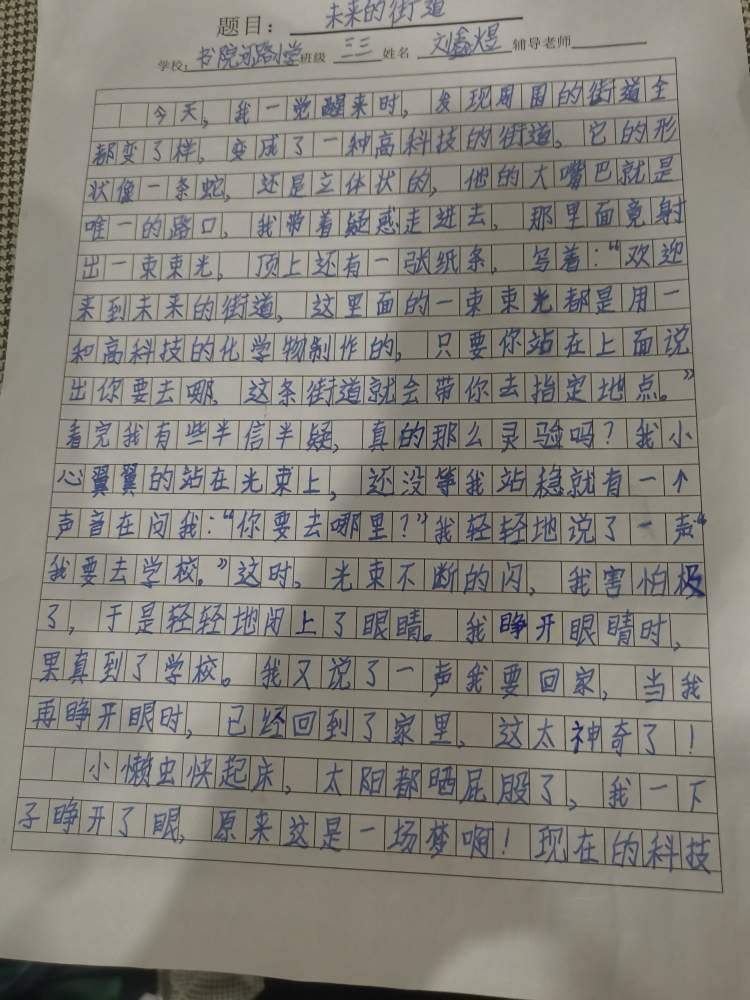 题目：未来的街道
学校：书院河路小学班级 三三 姓名 刘鑫煜 辅导老师
今天，我一觉醒来时，发现周围的街道全
都变了样，变成了一种高科技的街道，它的形
状像一条蛇，还是立体状的，他的大嘴巴就是
唯一的路口，我带着疑惑走进去，那里面竟射
出一束束光，顶上还有一张纸条，写着：“欢迎
来到未来的街道，这里面的一束束光都是用一
和高科技的化学物制作的，只要你站在上面说
出你要去哪，这条街道就会带你去指定地点。”
看完我有些半信半疑，真的那么灵验吗？我小
心翼翼的站在光束上，还没等我站稳就有一个
声音在问我：“你要去哪里？”我轻轻地说了一声“
我要去学校。”这时，光束不断的闪，我害怕极
了，于是轻轻地闭上了眼睛。我睁开眼睛时，
果真到了学校。我又说了一声我要回家，当我
再睁开眼时，已经回到了家里，这太神奇了！
小懒虫快起床，太阳都晒屁股了，我一下
子睁开了眼，原来这是一场梦啊！现在的科技